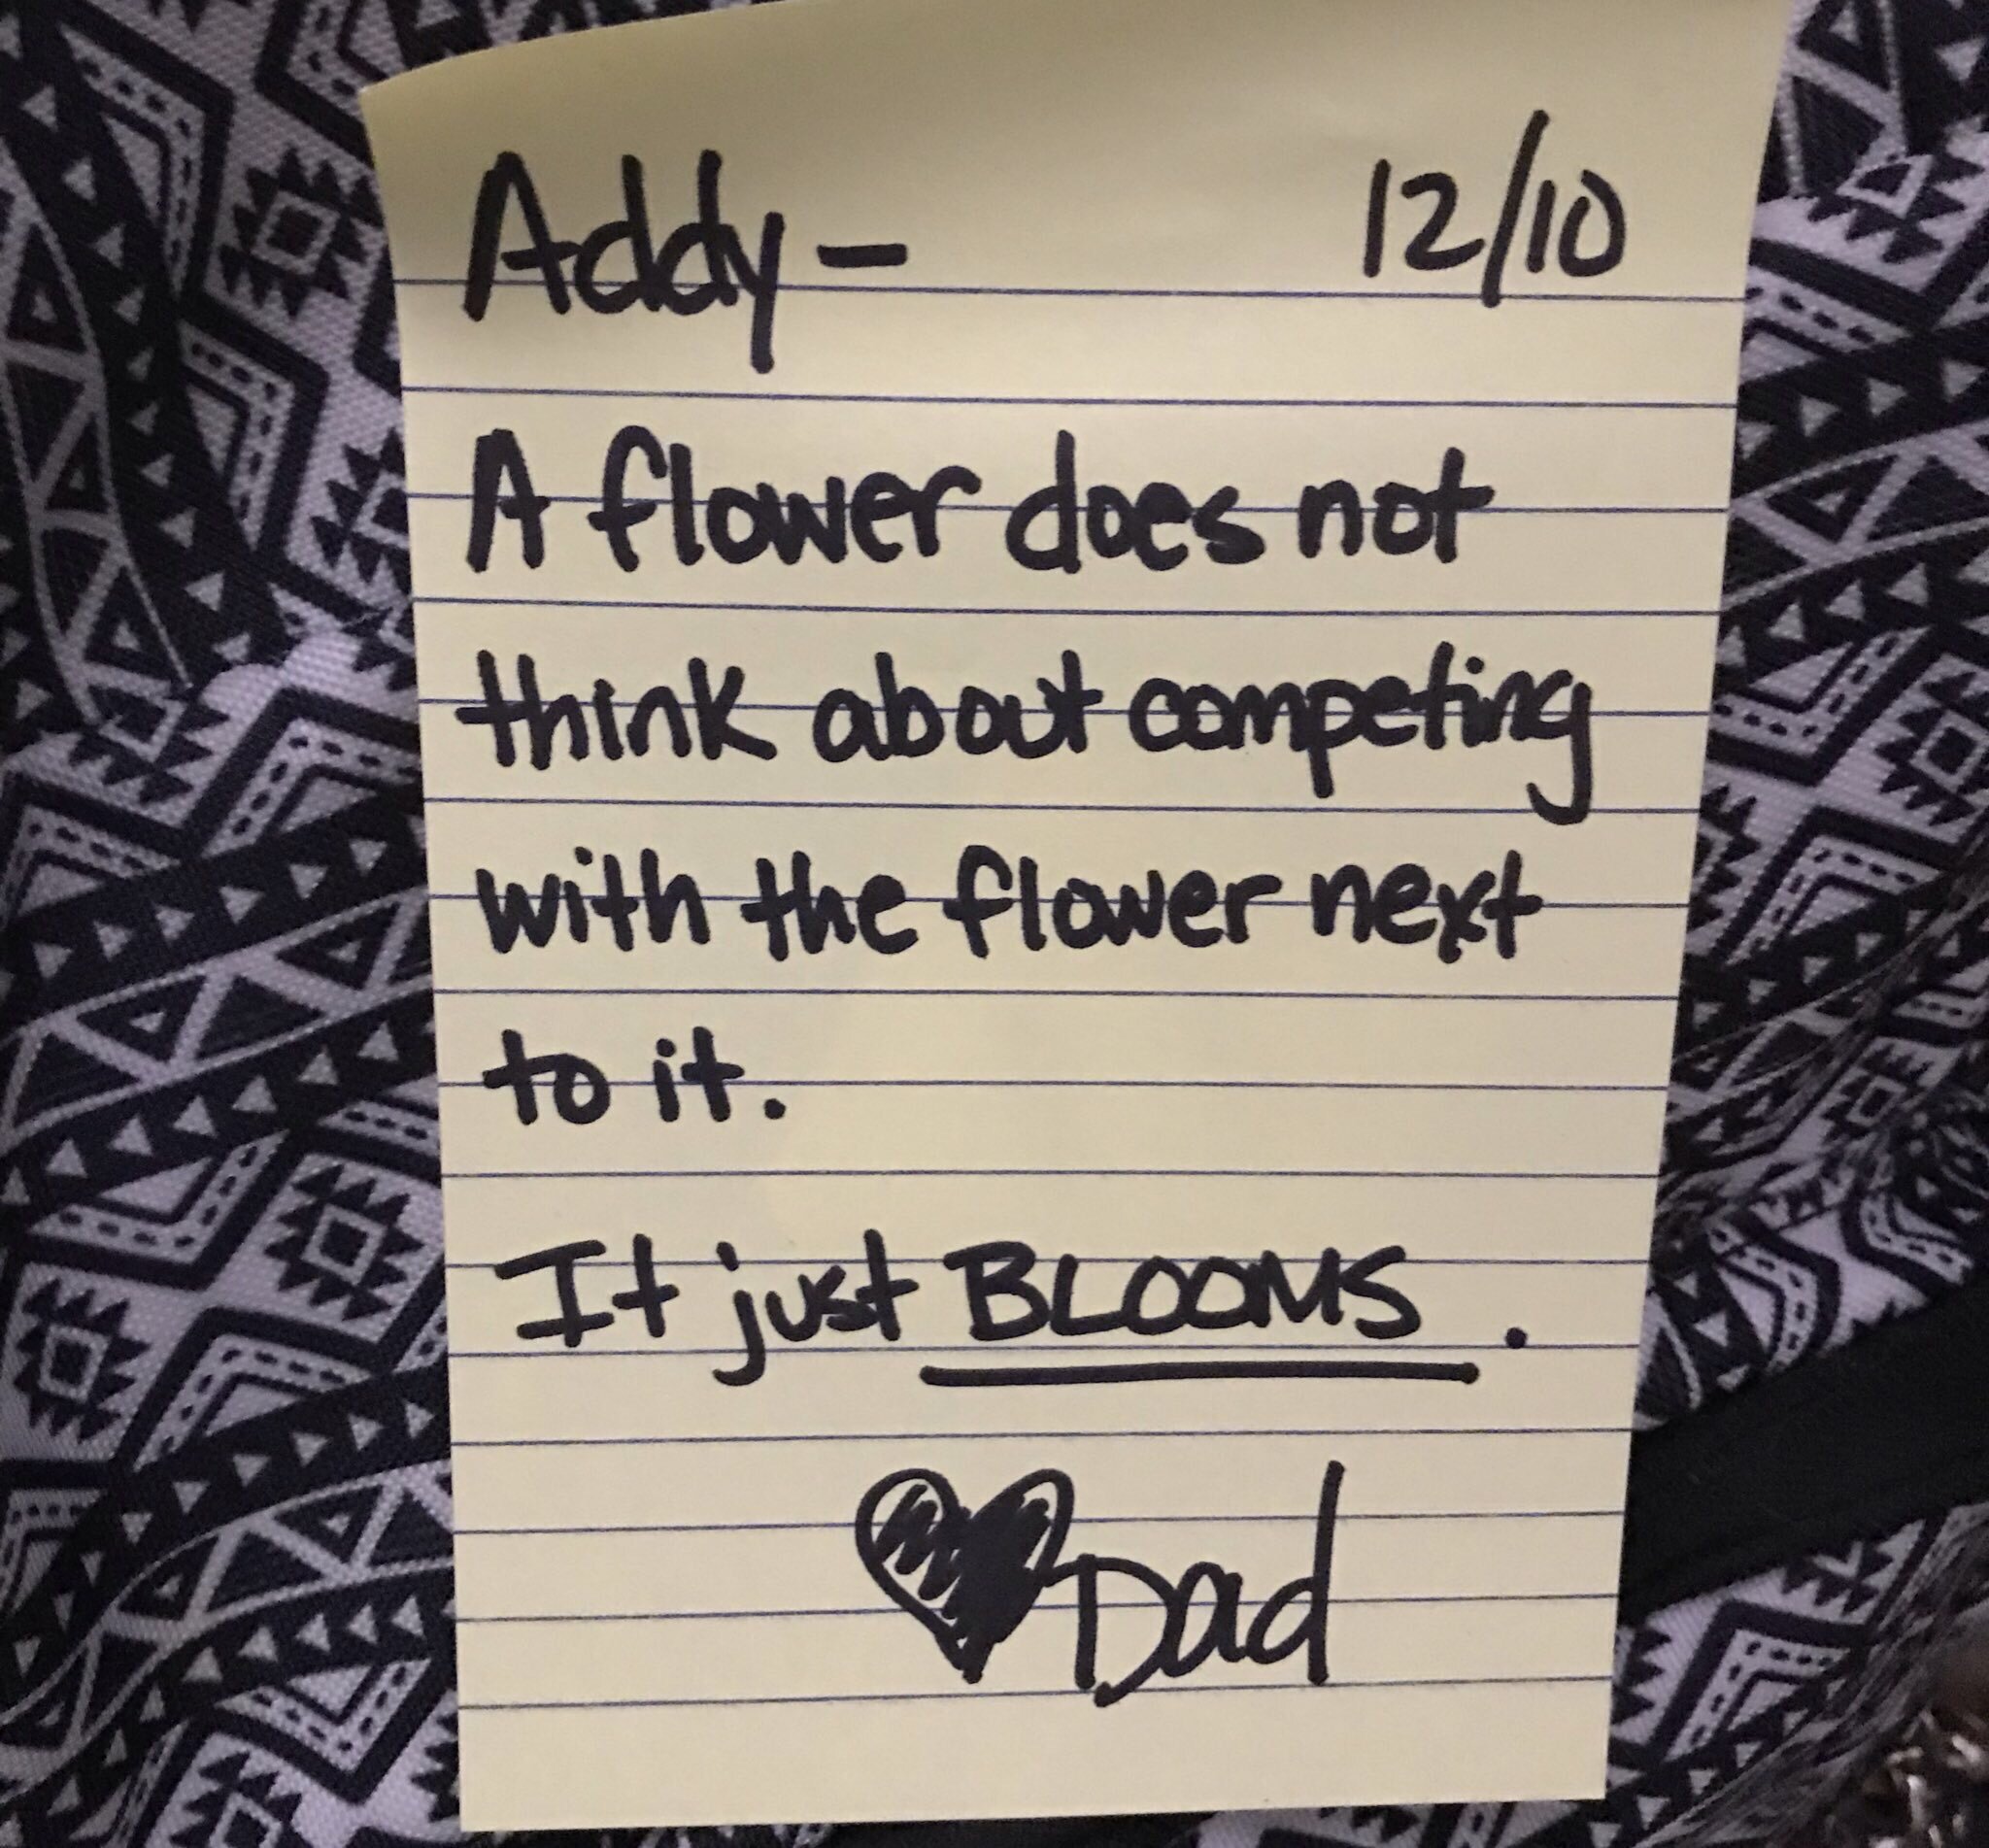 Addy – 12/10
A flower does not
think about competing
with the flower next
to it.
It just BLOOMS.
Dad